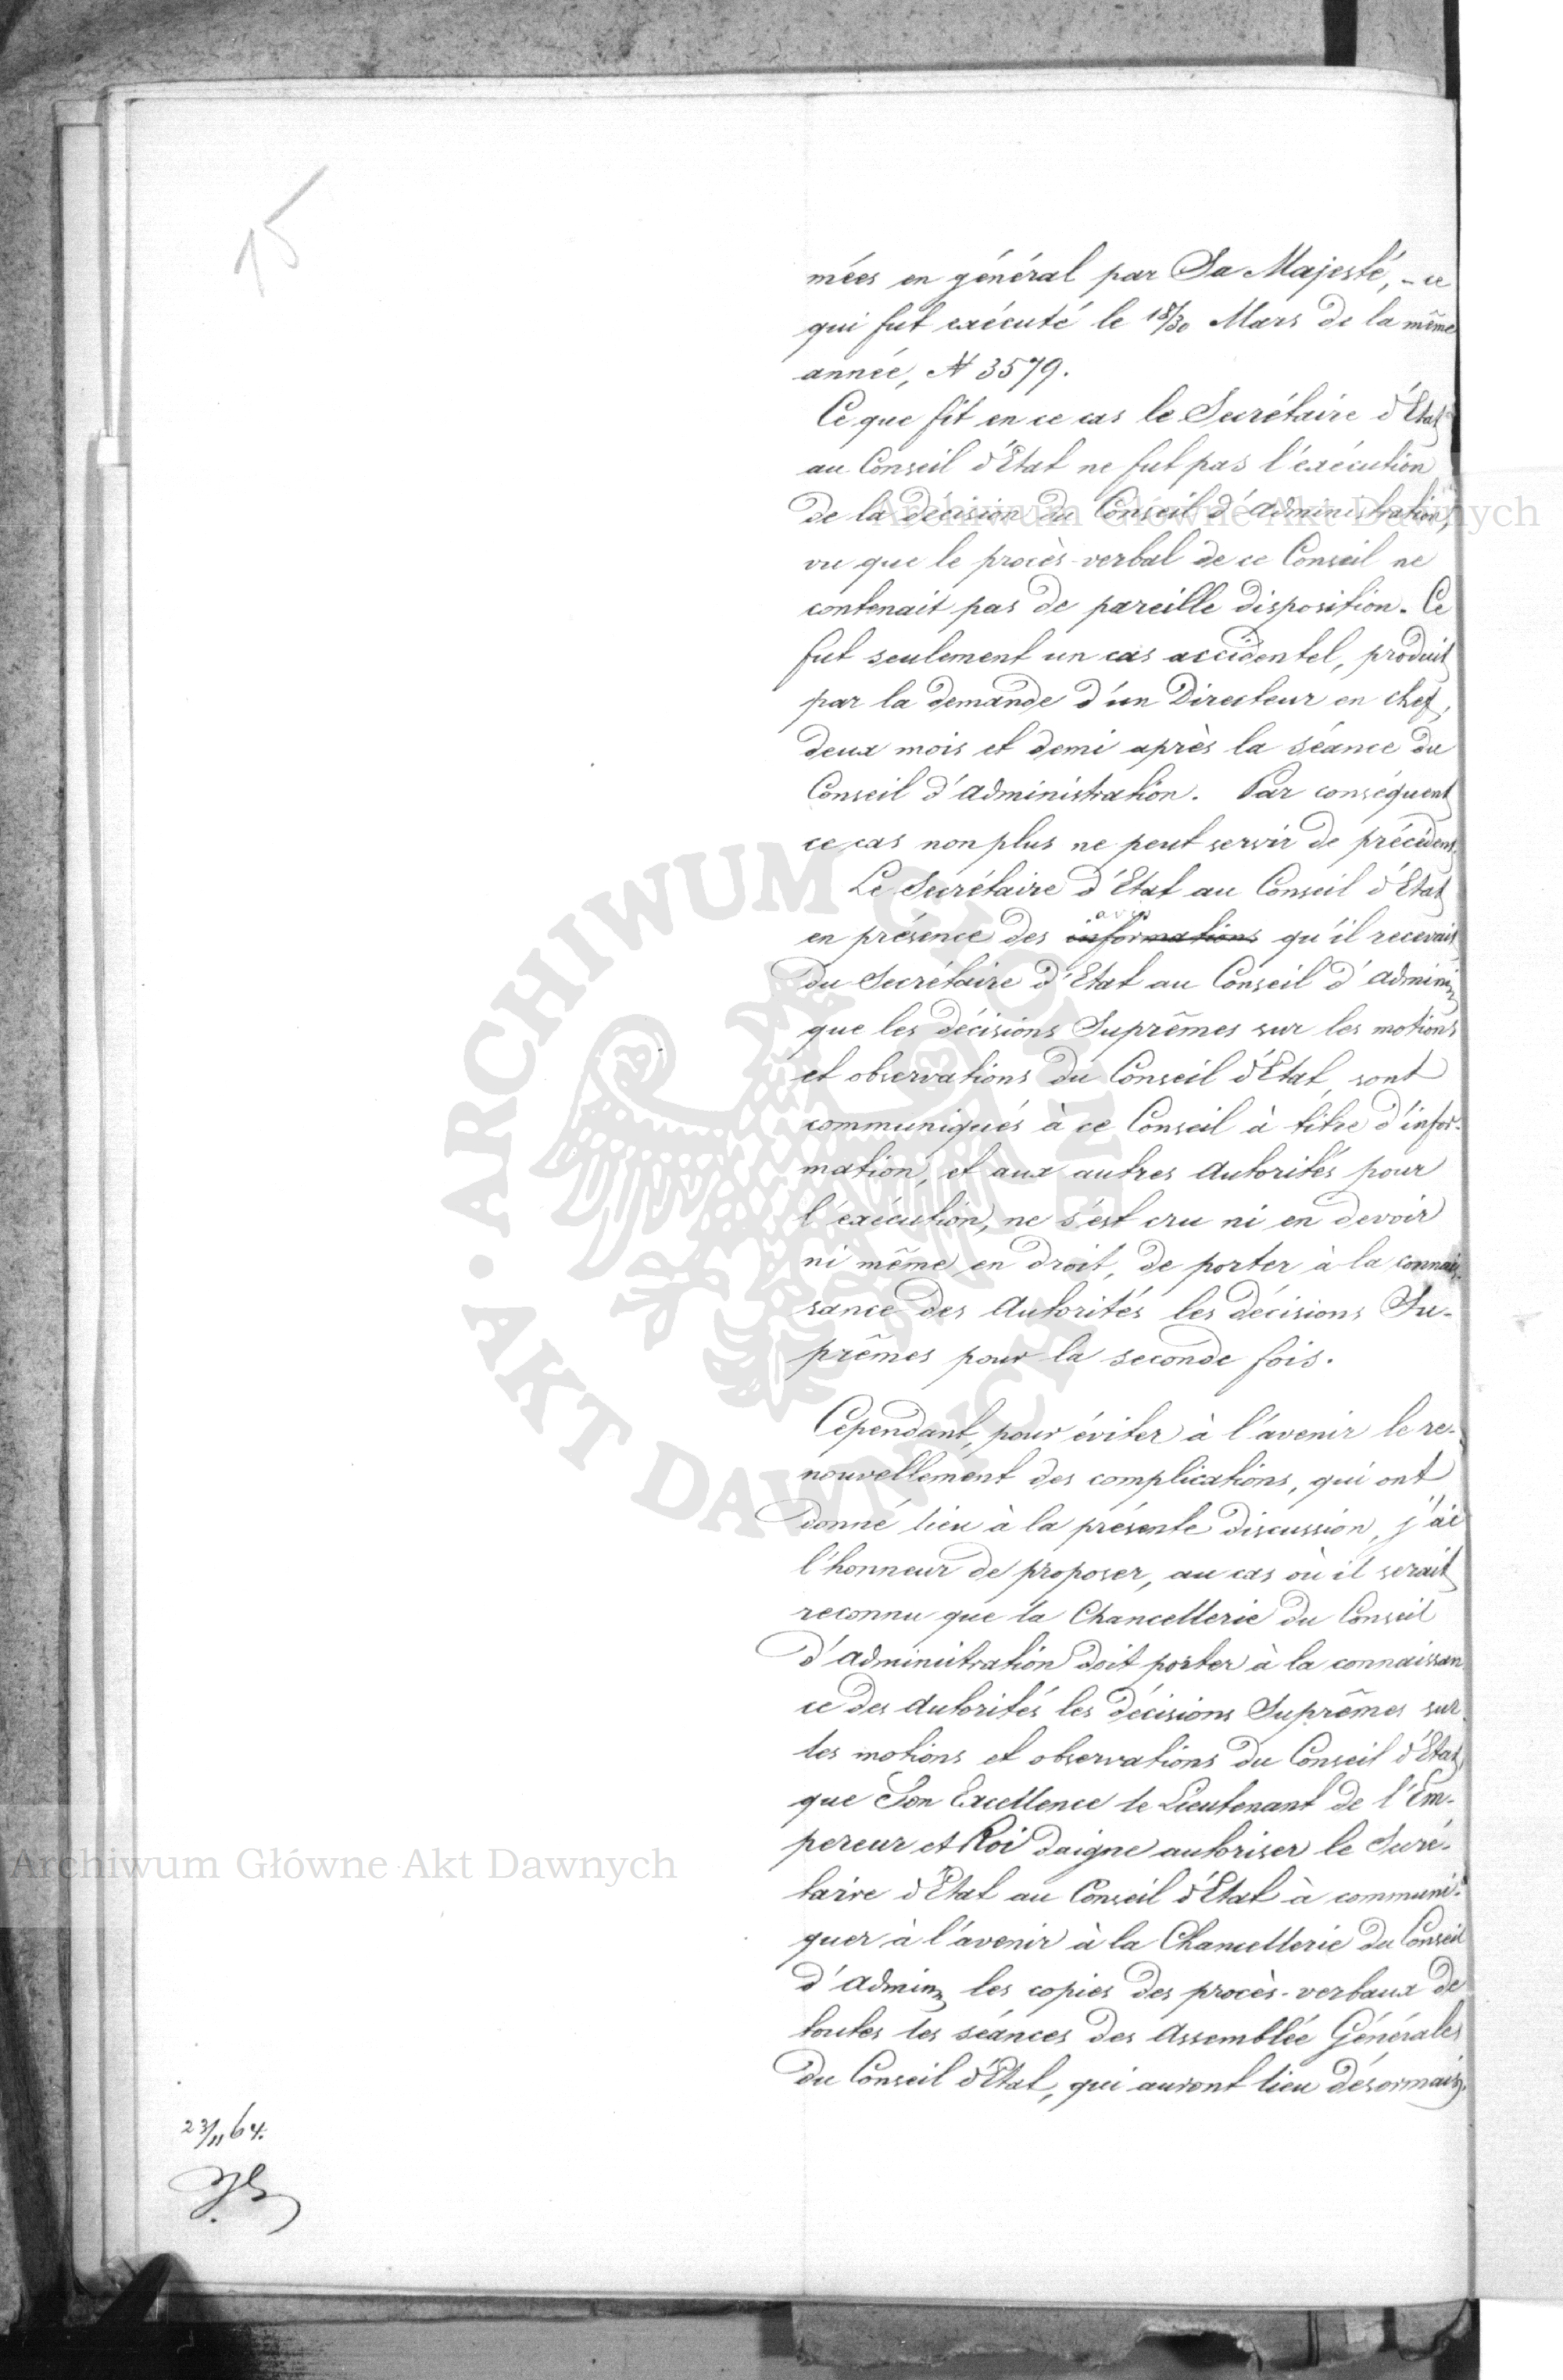 15
mées en général par Sa Majesté, - ce
qui fut exécuté le 18/30 Mars de la même
année, N 3579.
Ce que fit en ce cas le Secrétaire d'Etat
au Conseil d'Etat ne fut pas l'exécution
de la décision du Conseil d'Administration,
vu que le procès-verbal de ce Conseil ne
contenait pas de pareille disposition. Ce
fut seulement un cas accidentel, produit
par la demande d'un Directeur en chef,
deux mois et demi après la séance du
Conseil d'Administration. Par conséquent
ce cas non plus ne peut servir de précédent.
Le Secrétaire d'Etat au Conseil d'Etat
avis
en présence des informations qu'il recevait
du Secrétaire d'Etat au Conseil d'Admin
que les décisions Suprêmes sur les motions
et observations du Conseil d'Etat, sont
communiqués à ce Conseil à titre d'infor-
mation, et aux autres Autorités pour
l'exécution, ne s'est cru ni en devoir
ni même en droit, de porter à la connais-
sance des Autorités les décisions Su-
prêmes pour la seconde fois.
Cependant, pour éviter à l'avenir le re-
nouvellement des complications, qui ont
donné lieu à la présente discussion, j'ai
l'honneur de proposer, au cas où il serait
reconnu que la Chancellerie du Conseil
d'Administration doit porter à la connaissan
ce des Autorités les décisions Suprêmes sur
les motions et observations du Conseil d'Etat,
que Son Excellence le Lieutenant de l'Em-
pereur et Roi daigne autoriser le Secré-
taire d'Etat au Conseil d'Etat à communi-
quer à l'avenir à la Chancellerie du Conseil
d'Admin les copies des procès-verbaux de
toutes les séances des Assemblée Générales
du Conseil d'Etat, qui auront lieu désormais.
23/11 64.
Archiwum Główne Akt Dawnych
Archiwum Główne Akt Dawnych
ARCHIWUM GŁÓWNE AKT DAWNYCH